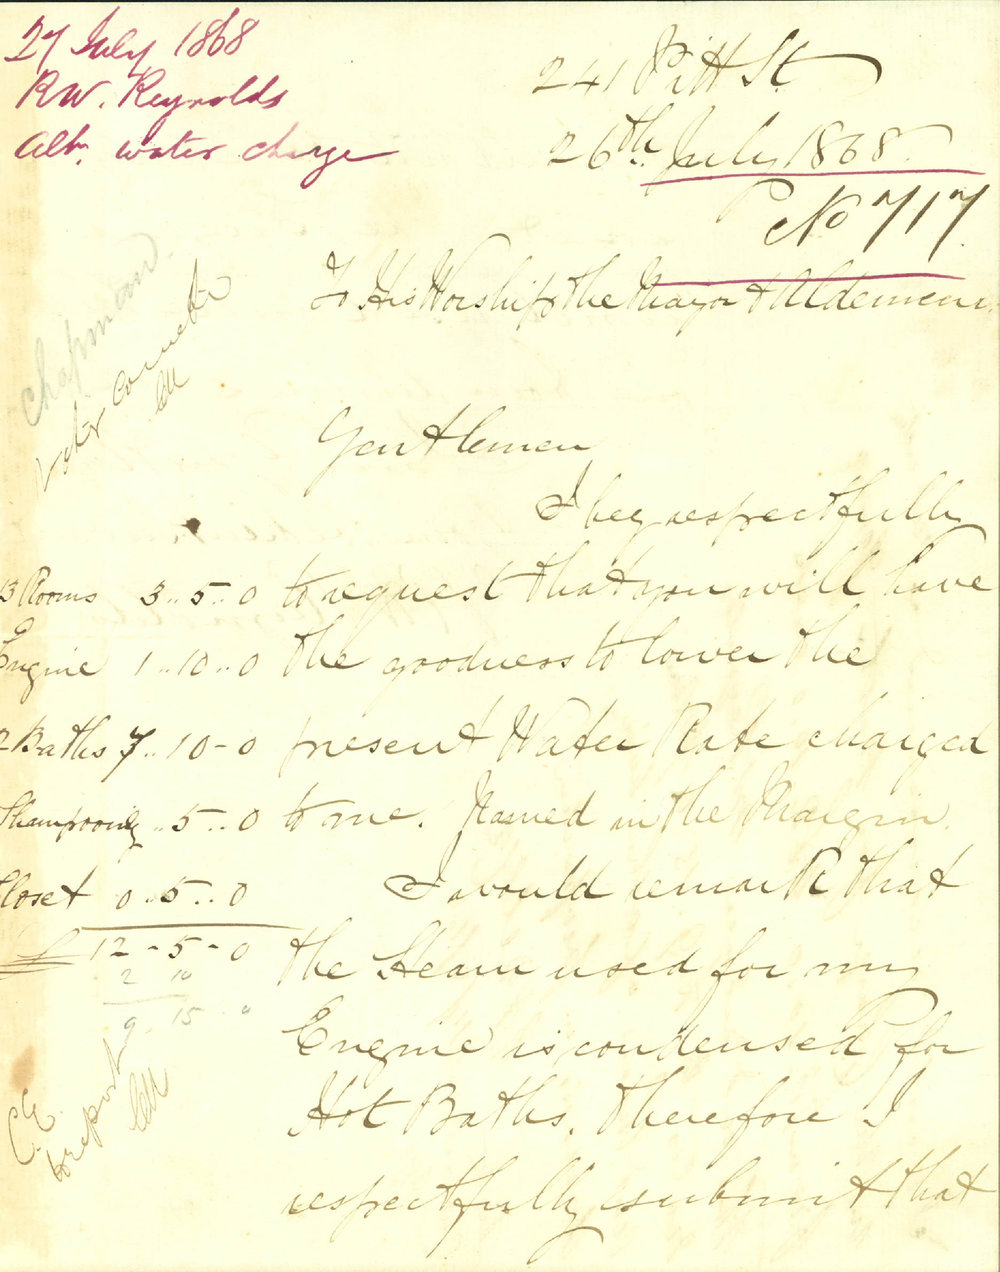 27 July 1868
R W. Reynolds
abt. water charge
241 Pitt St.
26th July 1868
No 717
To His Worship the Mayor & Aldermen.
Chapman.
Water Committee
Gentlemen
I beg respectfully
13 Rooms 3..5-0 to request that you will have
Engine 1..10..0 the goodness to lower the
2 Baths 7..10-0 present Water Rate charged
Shampooing ..5..0 to me. Named in the Margin.
Closet 0..5..0 I would remark that
£ 12-5-0 the Steam used for my
2 10
9.15..0
Engine is condensed for
Hot Baths. Therefore I
C.E.
to report
respectfully submit that